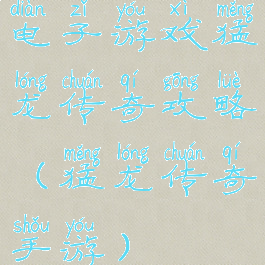 diàn zǐ yóu xì měng
电子游戏猛
lóng chuán qí gōng lüè
龙传奇攻略
měng lóng chuán qí
(猛龙传奇
shǒu yóu
手游)